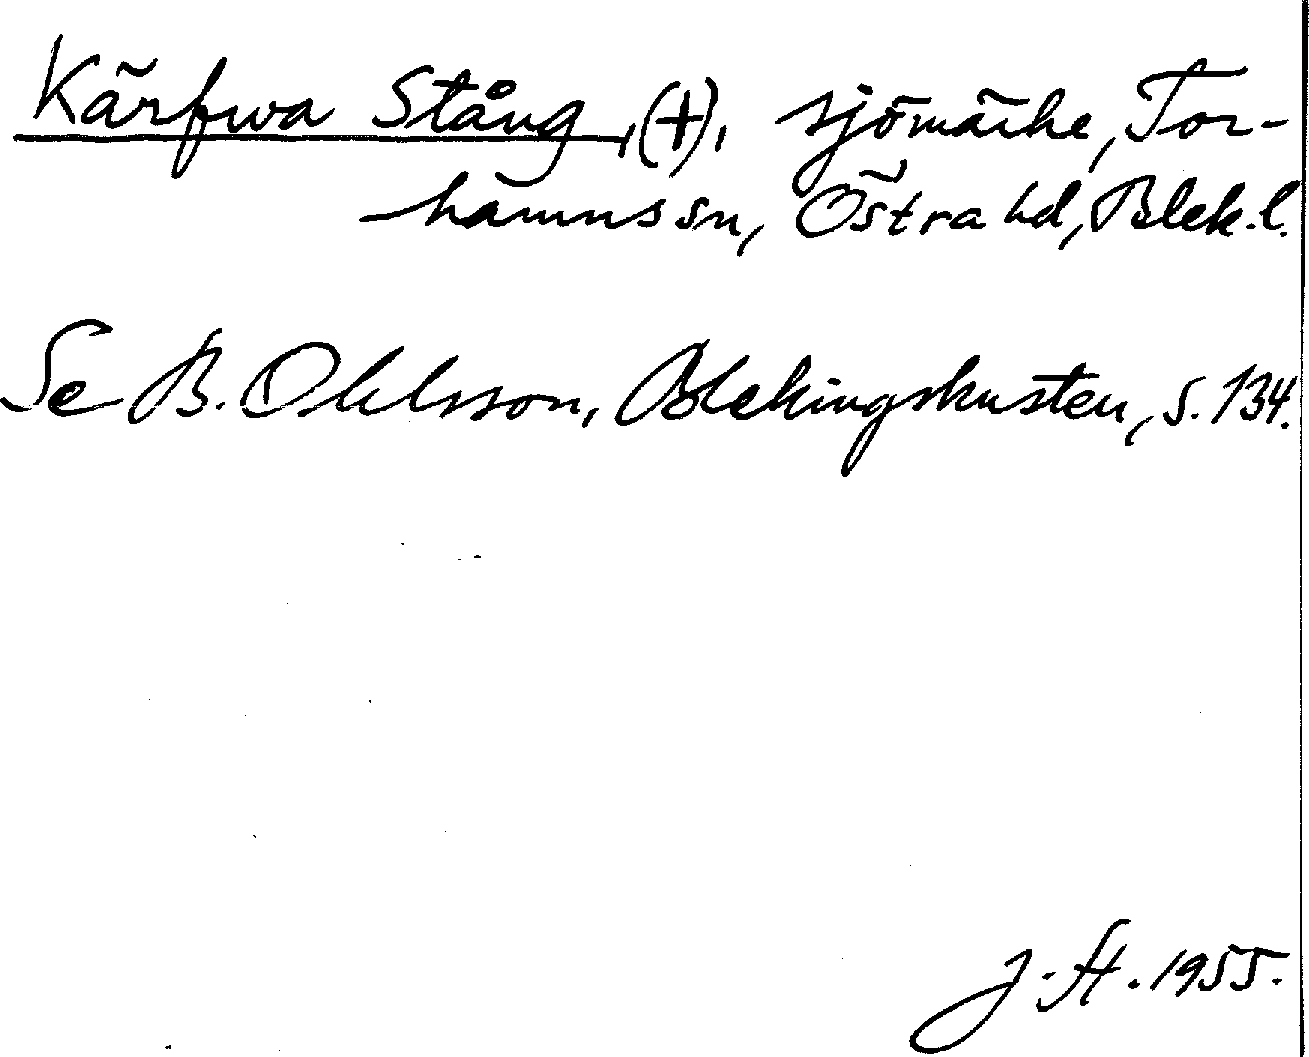 Kärfwa Stång, (+), sjömärke, Tor-
hamns sn, Östra hd, Blek. l.
Se B. Ohlsson, Blekingskusten, s. 134.
J. St. 1955.